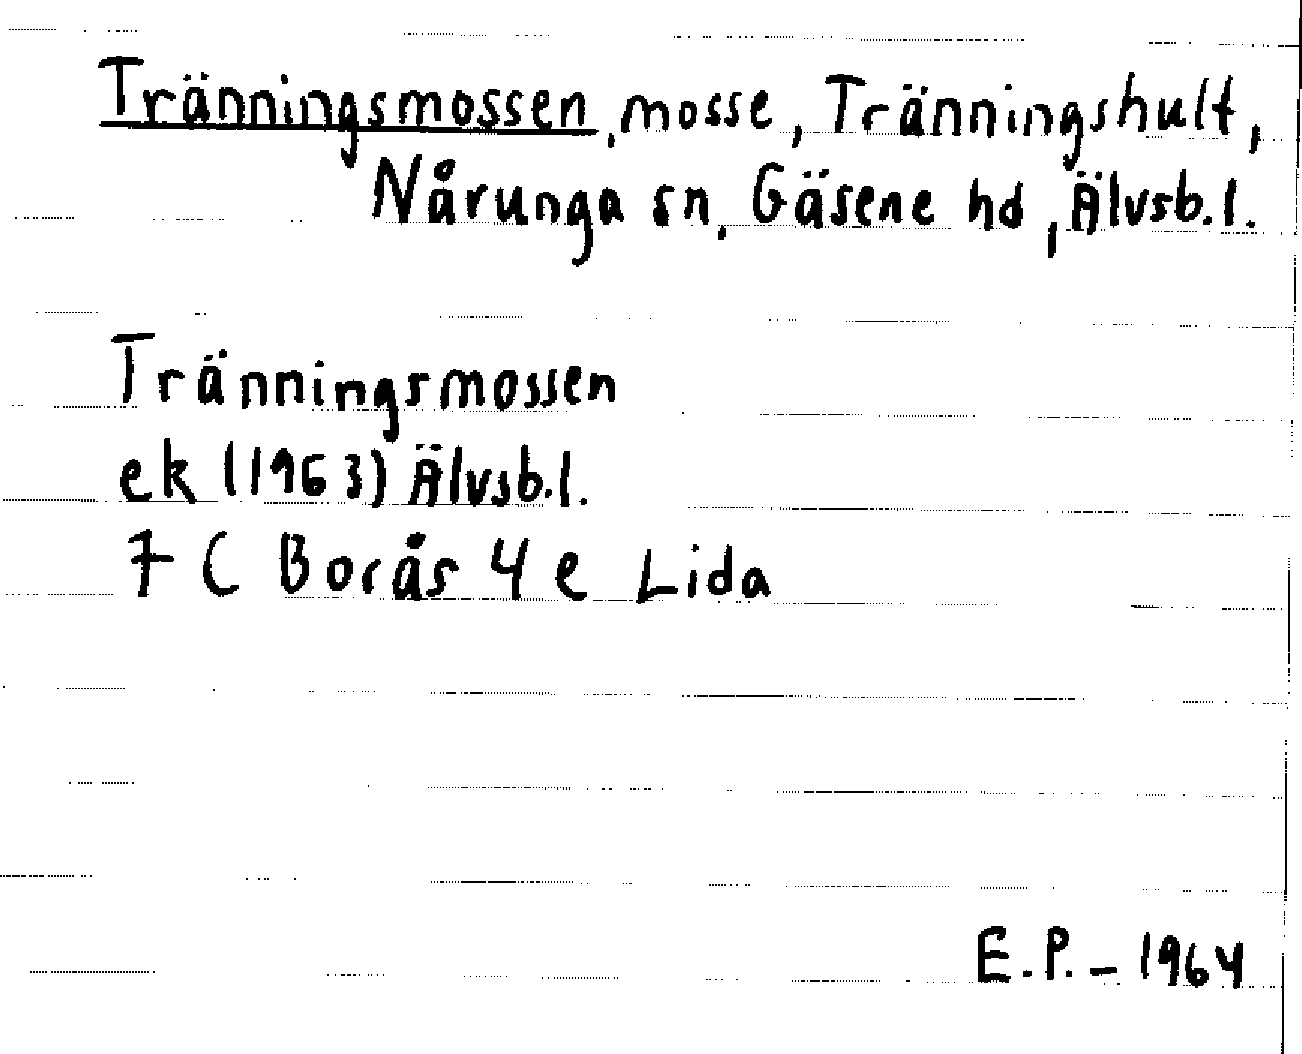 Tränningsmossen, mosse, Tränningshult,
Nårunga sn, Gäsene hd, Älvsb.l.
Tränningsmossen
ek (1963) Älvsb.l.
7 C Borås 4 e Lida
E.P. - 1964